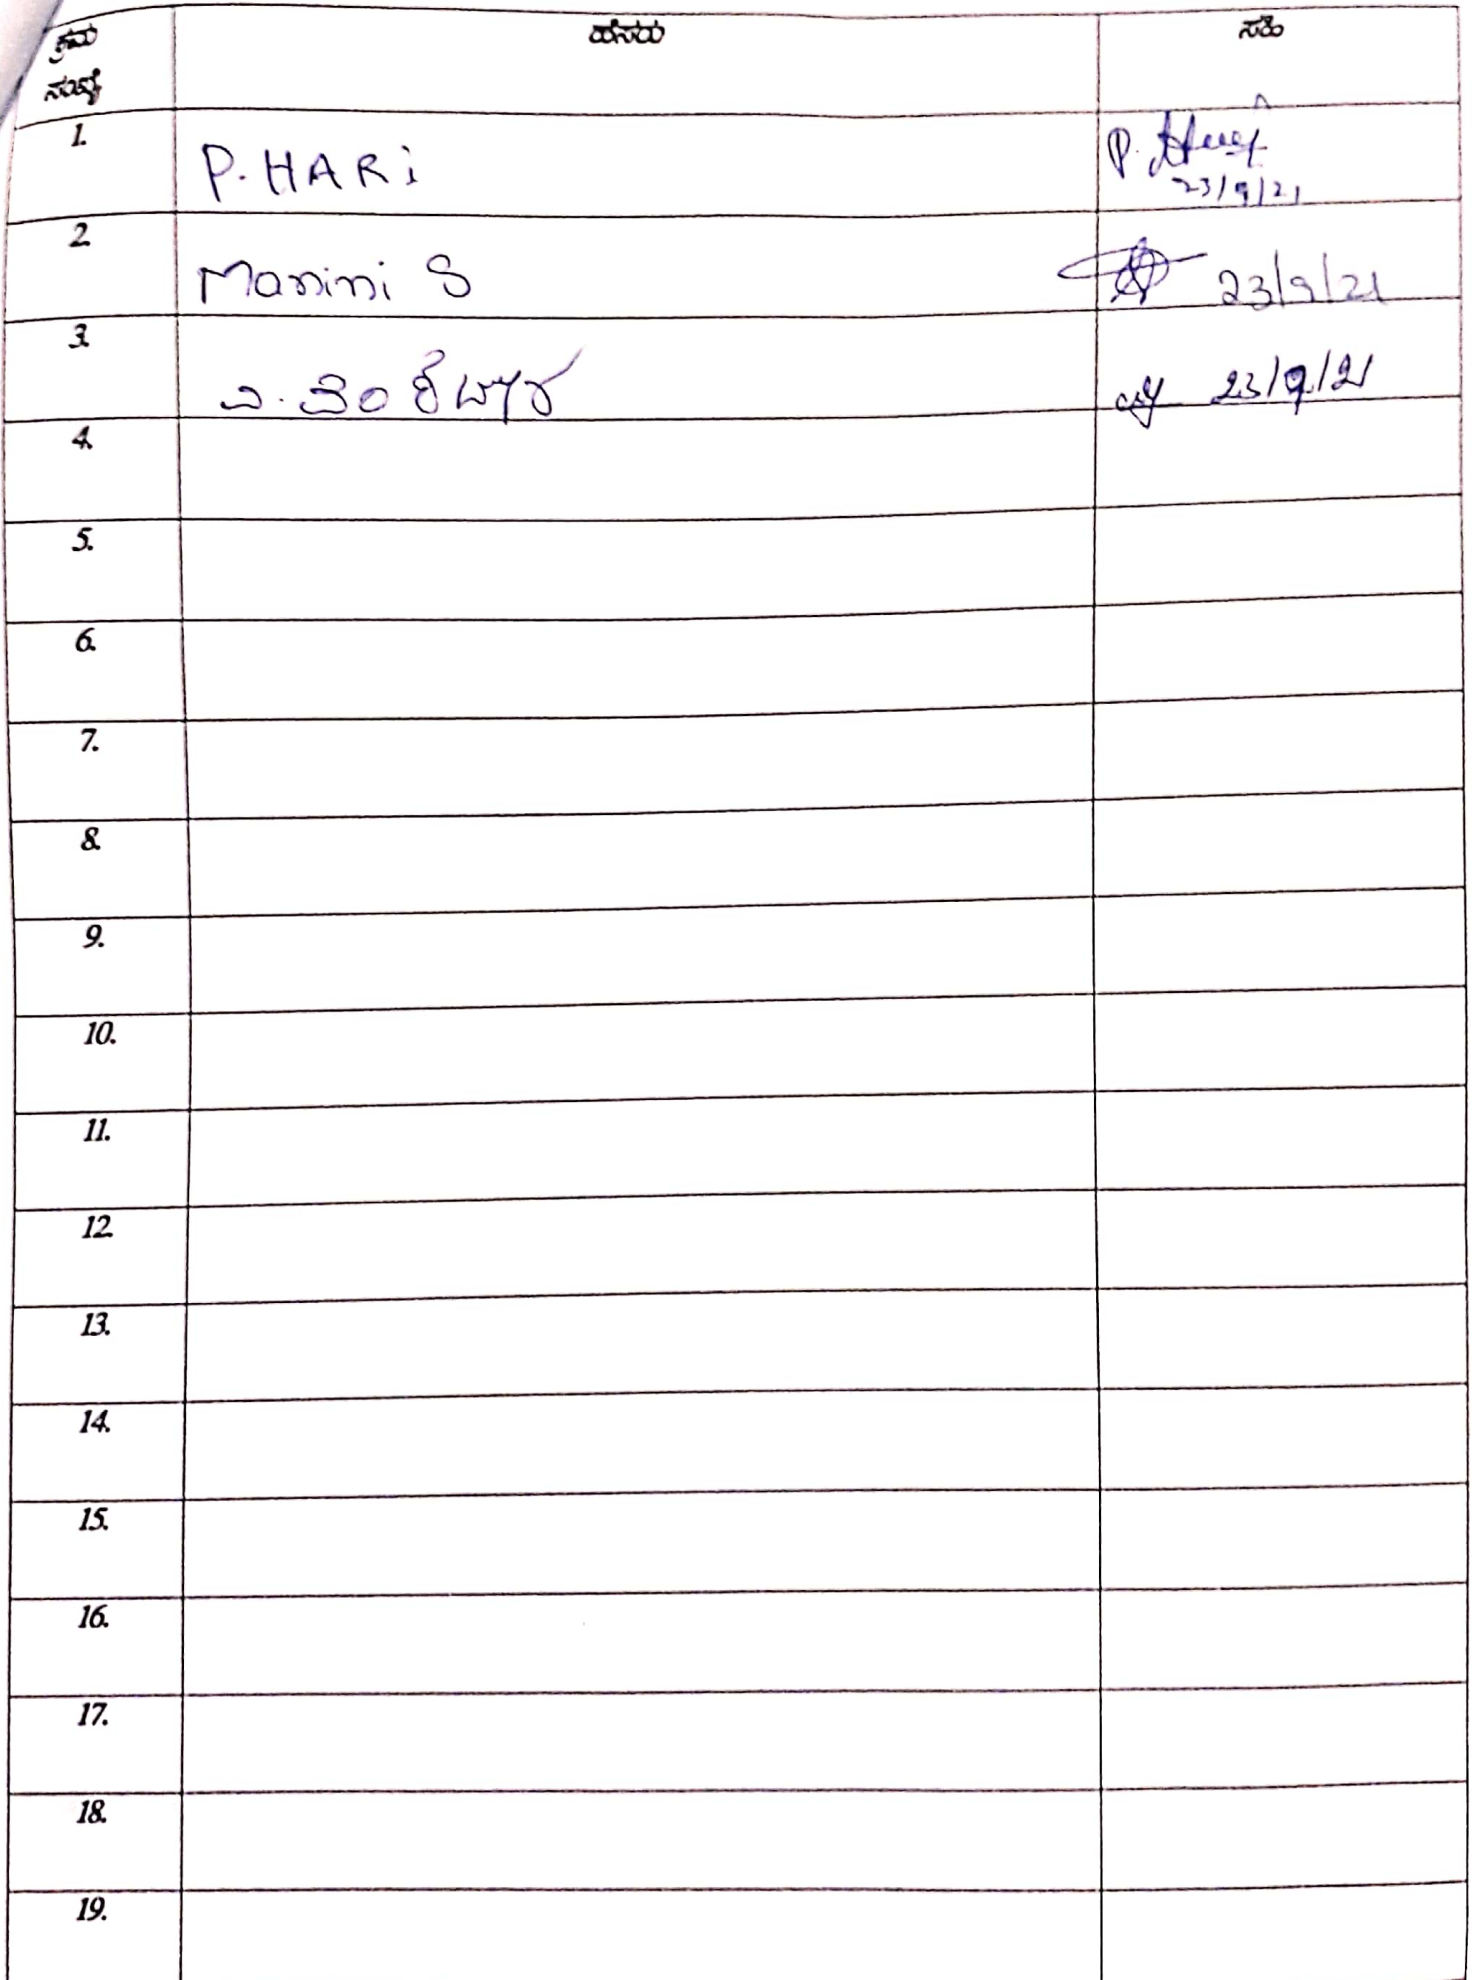 ಕ್ರಮ ಸಂಖ್ಯೆ ಹೆಸರು ಸಹಿ
1. P. HARi P. 23/9/21
2. Manini S 23/9/21
3. ವಿ. 23/9/21
4.
5.
6.
7.
8.
9.
10.
11.
12.
13.
14.
15.
16.
17.
18.
19.